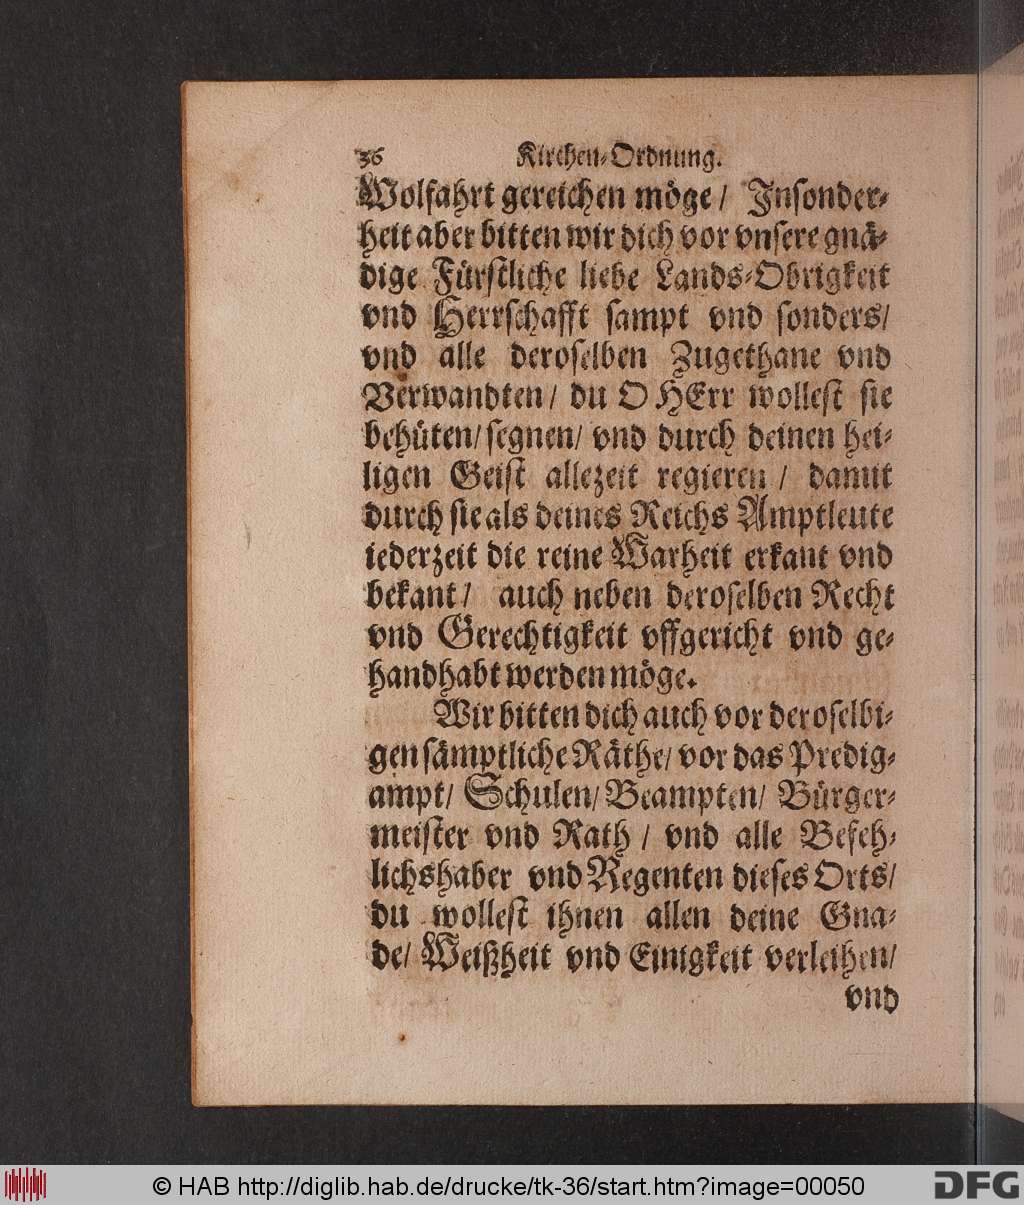 36 Kirchen-Ordnung.
Wolfahrt gereichen möge / Jnsonder-
heit aber bitten wir dich vor vnsere gnä-
dige Fürstliche liebe Lands-Obrigkeit
vnd Herrschafft sampt vnd sonders /
vnd alle deroselben Zugethane vnd
Verwandten / du O HErr wollest sie
behüten / segnen / vnd durch deinen hei-
ligen Geist allezeit regieren / damit
durch sie als deines Reichs Amptleute
iederzeit die reine Warheit erkant vnd
bekant / auch neben deroselben Recht
vnd Gerechtigkeit vffgericht vnd ge-
handhabt werden möge.
Wir bitten dich auch vor deroselbi-
gen sämptliche Räthe / vor das Predig-
ampt / Schulen / Beampten / Bürger-
meister vnd Rath / vnd alle Befeh-
lichshaber vnd Regenten dieses Orts /
du wollest ihnen allen deine Gna-
de / Weißheit vnd Einigkeit verleihen /
vnd
© HAB http://diglib.hab.de/drucke/tk-36/start.htm?image=00050
DFG